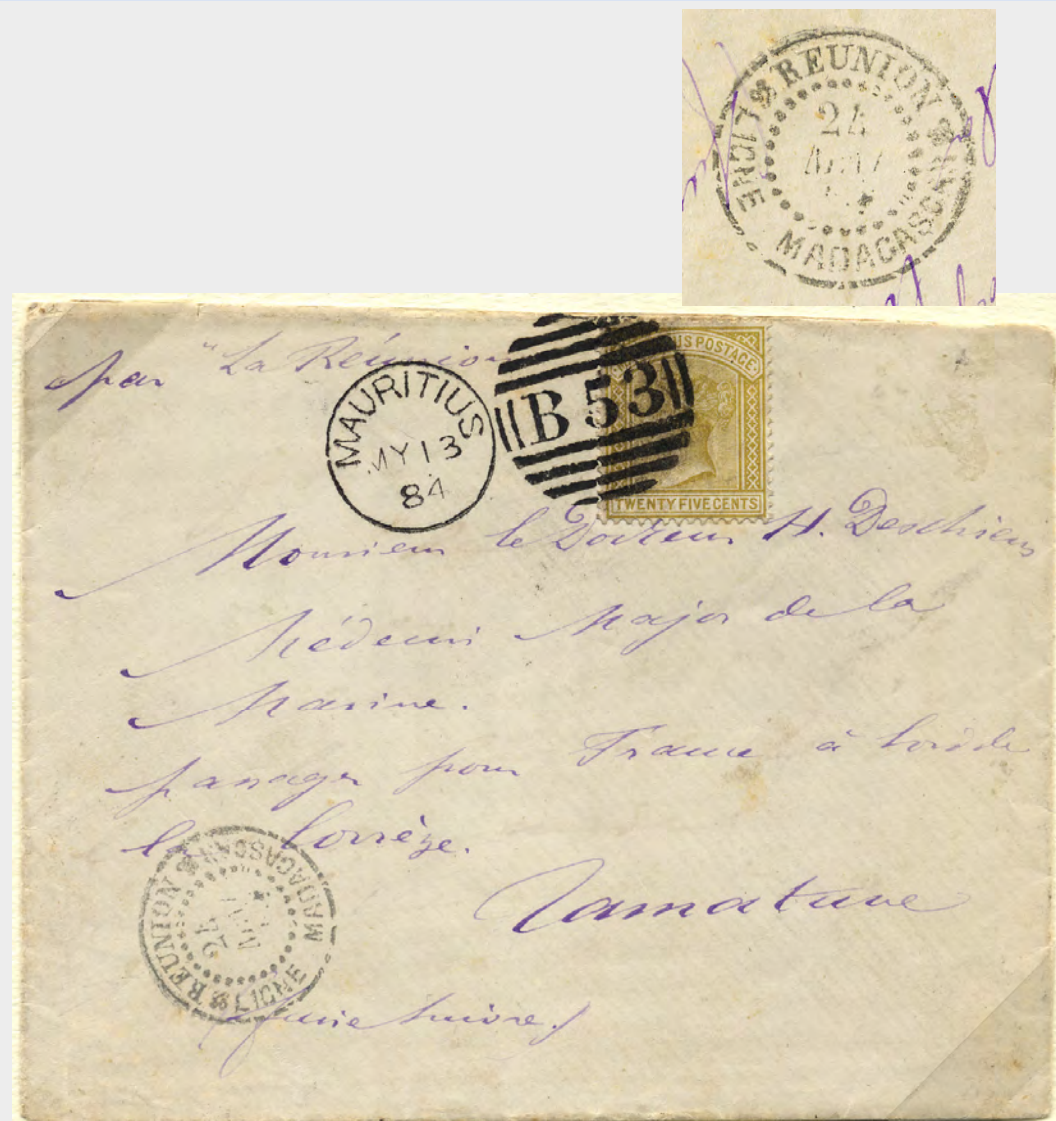 REUNION
LIGNE
MADAGASCAR
24
par "La Réunion
MAURITIUS
MY 13
84
B 53
US POSTAGE
TWENTY FIVE CENTS
Monsieur le Docteur H. Deschiens
Médecin Major de la
Marine.
passager pour France à bord de
la Corrèze.
Tamatave
REUNION
LIGNE
MADAGASCAR
24
faire suivre